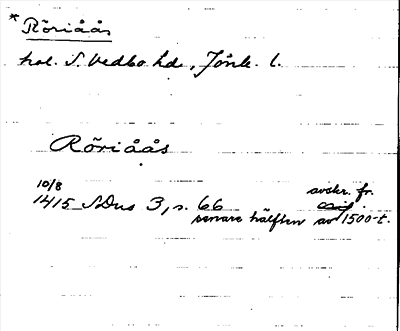 * Röriåås
hol. S. Vedbo hd., Jönk. l.
Röriåås
10/8
1415 SDns 3, s. 66 avskr. fr.
senare hälften av 1500-t.